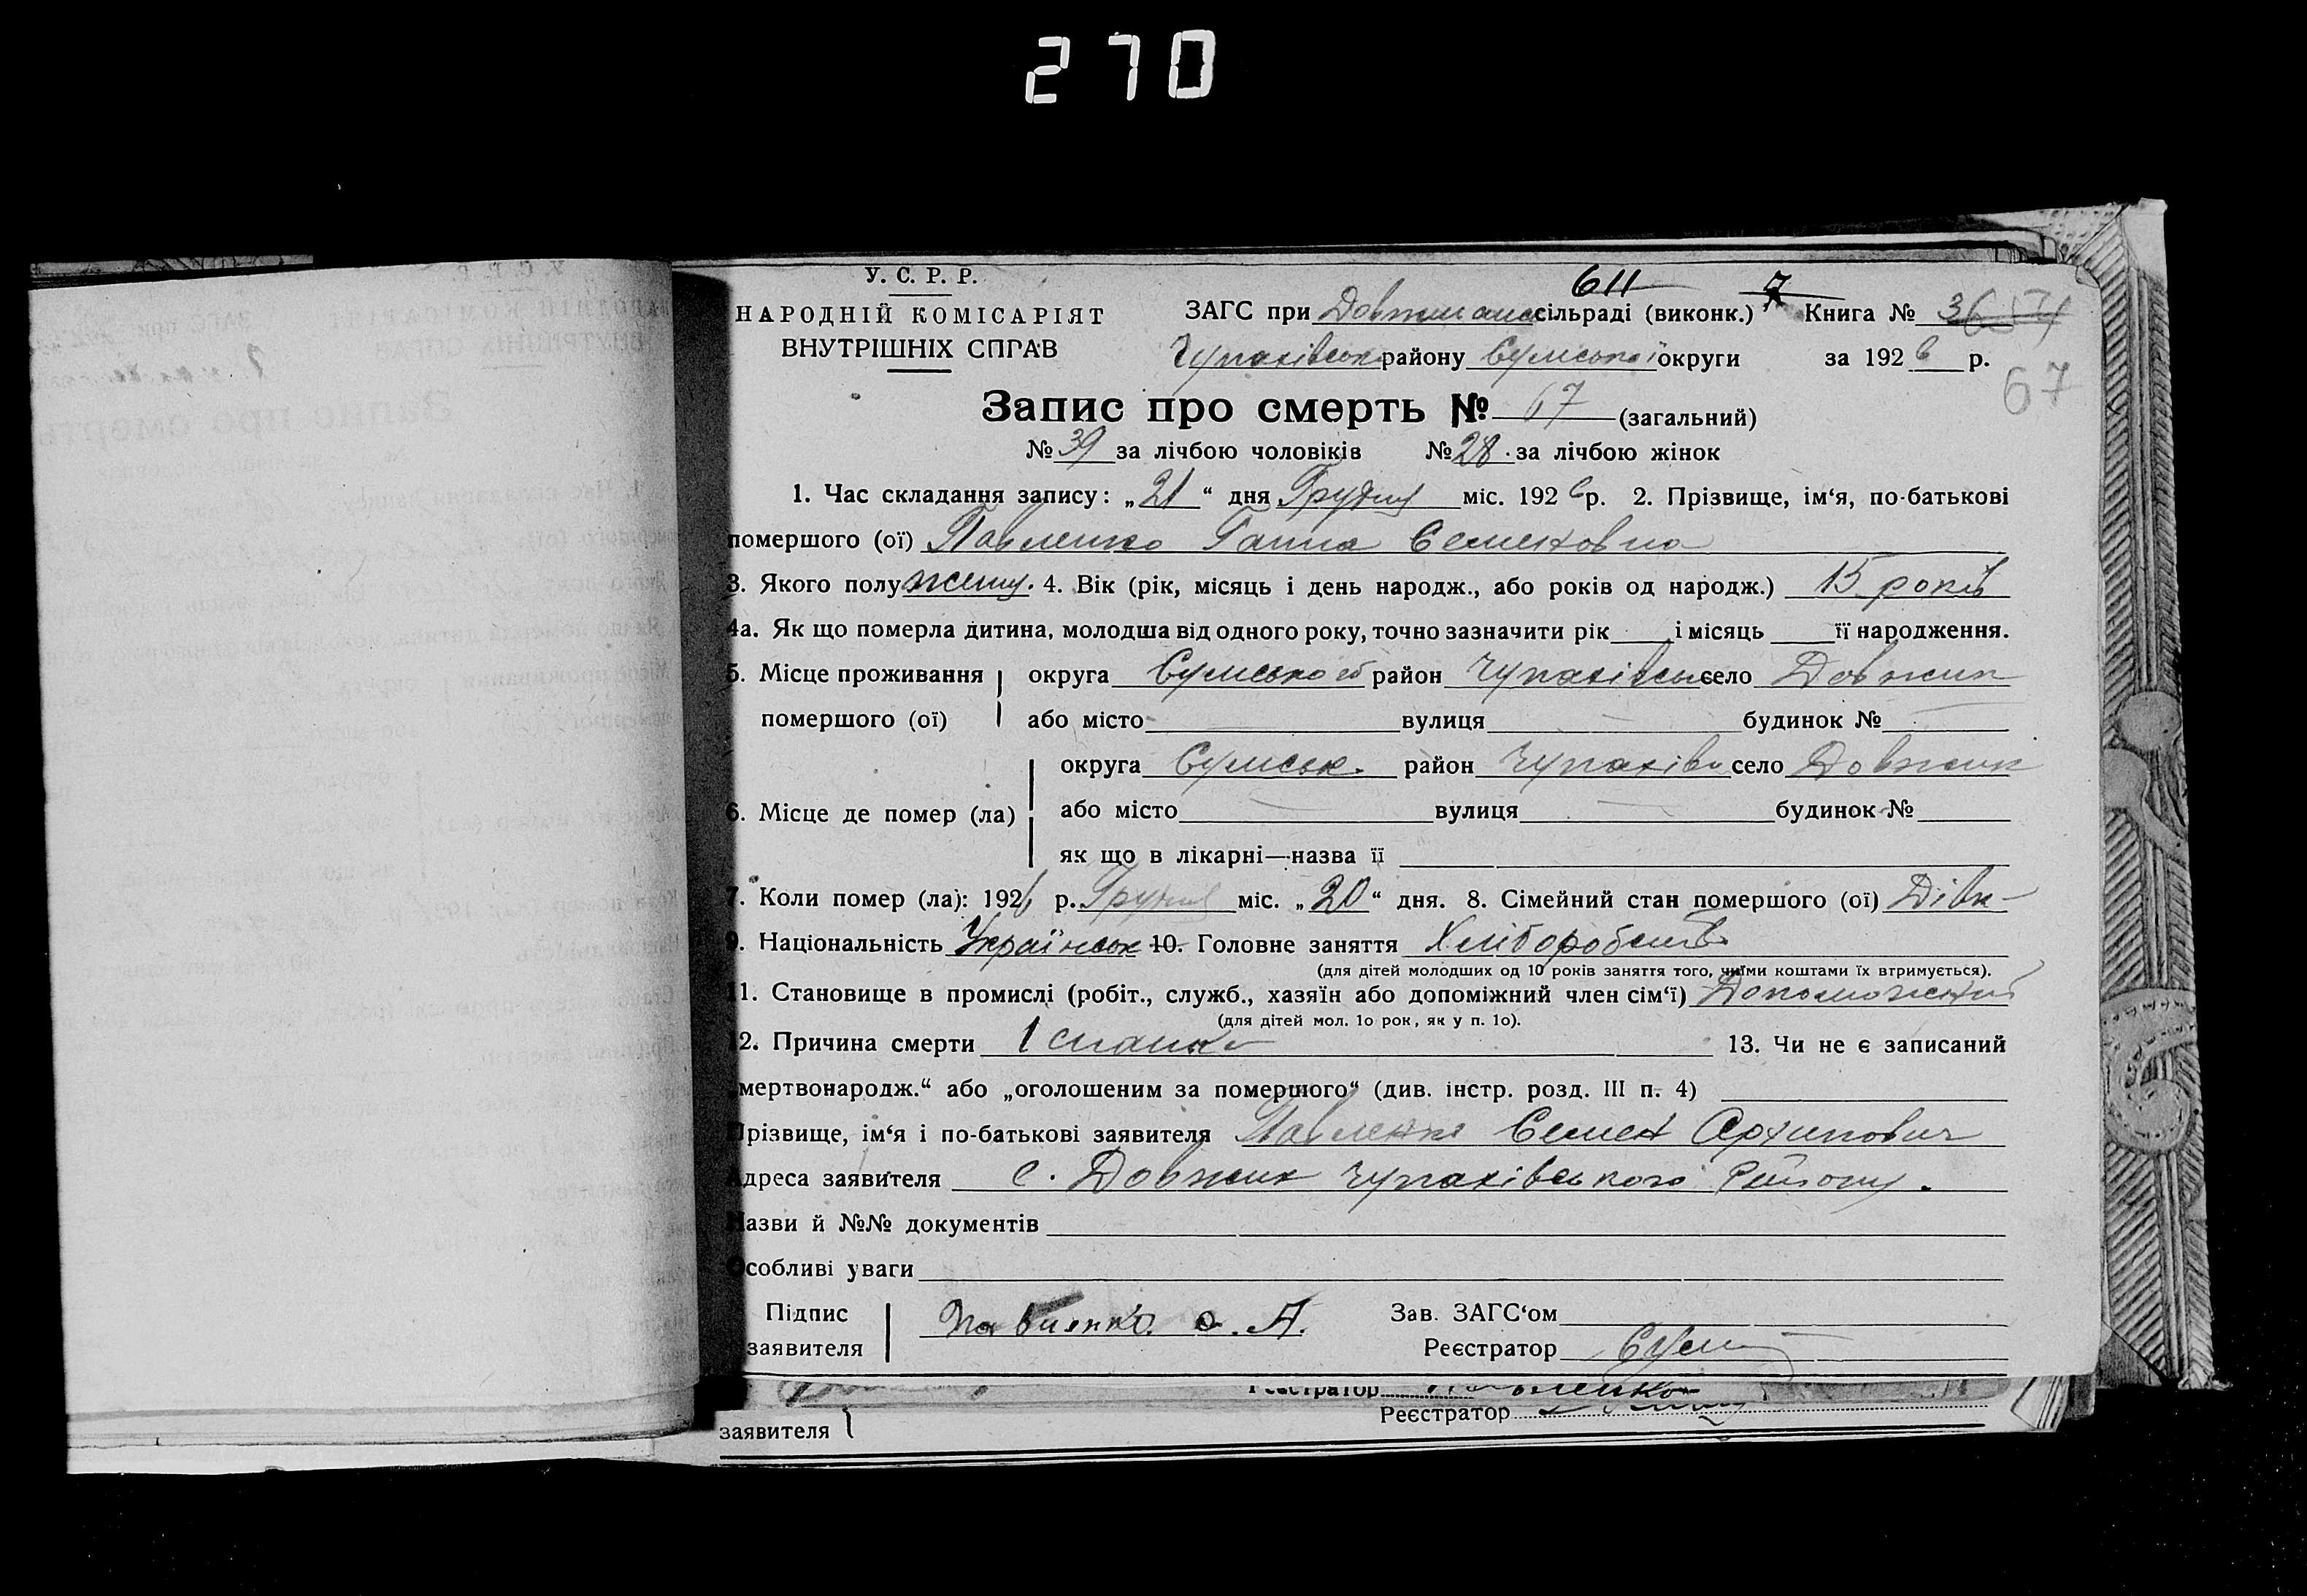 270
У. С. Р. Р.
НАРОДНІЙ КОМІСАРІЯТ
ВНУТРІШНІХ СПРАВ
611 7
ЗАГС при сільраді (виконк.) Книга №
Чупахівськ району Сумської округи за 1926 р.
67
Запис про смерть № 67 (загальний)
№ 39 за лічбою чоловіків № 28 за лічбою жінок
1. Час складання запису: „21“ дня Грудня міс. 1926 р. 2. Прізвище, ім‘я, по-батькові
помершого (ої) Павленко Ганна Семеновна
3. Якого полу жіну. 4. Вік (рік, місяць і день народж., або років од народж.) 15 років
4а. Як що померла дитина, молодша від одного року, точно зазначити рік і місяць її народження.
5. Місце проживання округа район Чупахівськ село Довжик
помершого (ої) або місто вулиця будинок №
округа Сумськ. район Чупахівк село Довжик
6. Місце де помер (ла) або місто вулиця будинок №
як що в лікарні—назва її
7. Коли помер (ла): 1926 р. Грудня міс. „20“ дня. 8. Сімейний стан помершого (ої) Дівк-
9. Національність Українськ 10. Головне заняття Хліборобств
(для дітей молодших од 10 років заняття того, чиїми коштами їх втримується).
11. Становище в промислі (робіт., служб., хазяїн або допоміжний член сім‘ї) Допоможний
(для дітей мол. 1о рок, як у п. 1о).
12. Причина смерти Іспанка 13. Чи не є записаний
„мертвонародж.“ або „оголошеним за помершого“ (див. інстр. розд. III п. 4)
Прізвище, ім‘я і по-батькові заявителя Павленко Семен Архипович
Адреса заявителя с. Довжик Чупахівського Району.
Назви й №№ документів
Особливі уваги
Підпис заявителя Павленко С. А. Зав. ЗАГС‘ом
Реєстратор
Реєстратор
Реєстратор
заявителя